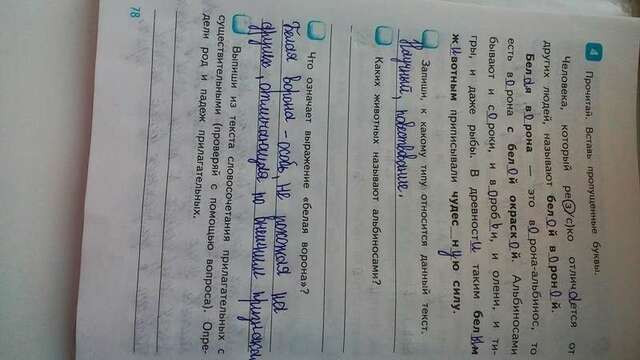 4 Прочитай. Вставь пропущенные буквы.
Человека, который ре(з/с)ко отличается от
других людей, называют белой вороной.
Белая ворона — это ворона-альбинос, то
есть ворона с белой окраской. Альбиносами
бывают и сороки, и воробьи, и олени, и ти-
гры, и даже рыбы. В древности таким белым
животным приписывали чудесную силу.
Запиши, к какому типу относится данный текст.
Научный, повествование.
Каких животных называют альбиносами?
Что означает выражение «белая ворона»?
Белая ворона - особь, не похожая на
других, отличающаяся по внешним признакам
Выпиши из текста словосочетания прилагательных с
существительными (проверяй с помощью вопроса). Опре-
дели род и падеж прилагательных.
78